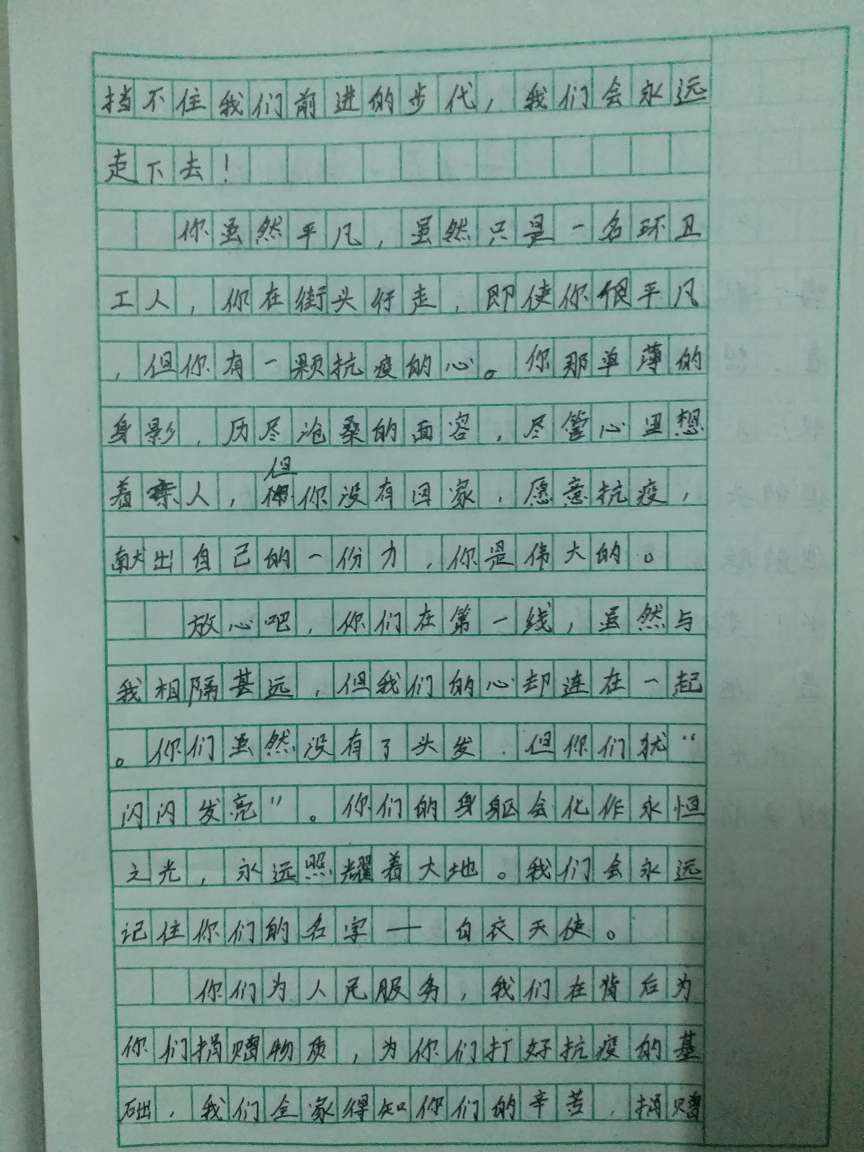 挡不住我们前进的步代，我们会永远
走下去！
你虽然平凡，虽然只是一名环卫
工人，你在街头行走，即使你很平凡
，但你有一颗抗疫的心。你那单薄的
身影，历尽沧桑的面容，尽管心里想
着亲人，但你没有回家，愿意抗疫，
献出自己的一份力，你是伟大的。
放心吧，你们在第一线，虽然与
我相隔甚远，但我们的心却连在一起
。你们虽然没有了头发，但你们犹“
闪闪发亮”。你们的身躯会化作永恒
之光，永远照耀着大地。我们会永远
记住你们的名字——白衣天使。
你们为人民服务，我们在背后为
你们捐赠物质，为你们打好抗疫的基
础，我们全家得知你们的辛苦，捐赠